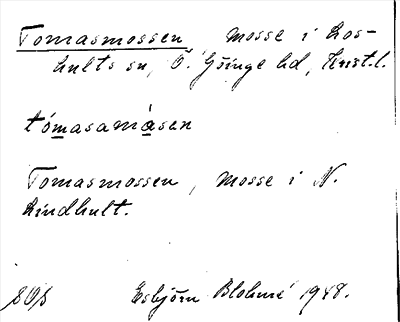 Tomasmossen, mosse i Los-
hults sn, Ö. Göinge hd, Krist.l.
tómasamåsen
Tomasmossen, mosse i N.
Lindhult.
Esbjörn Blohmé 1948.